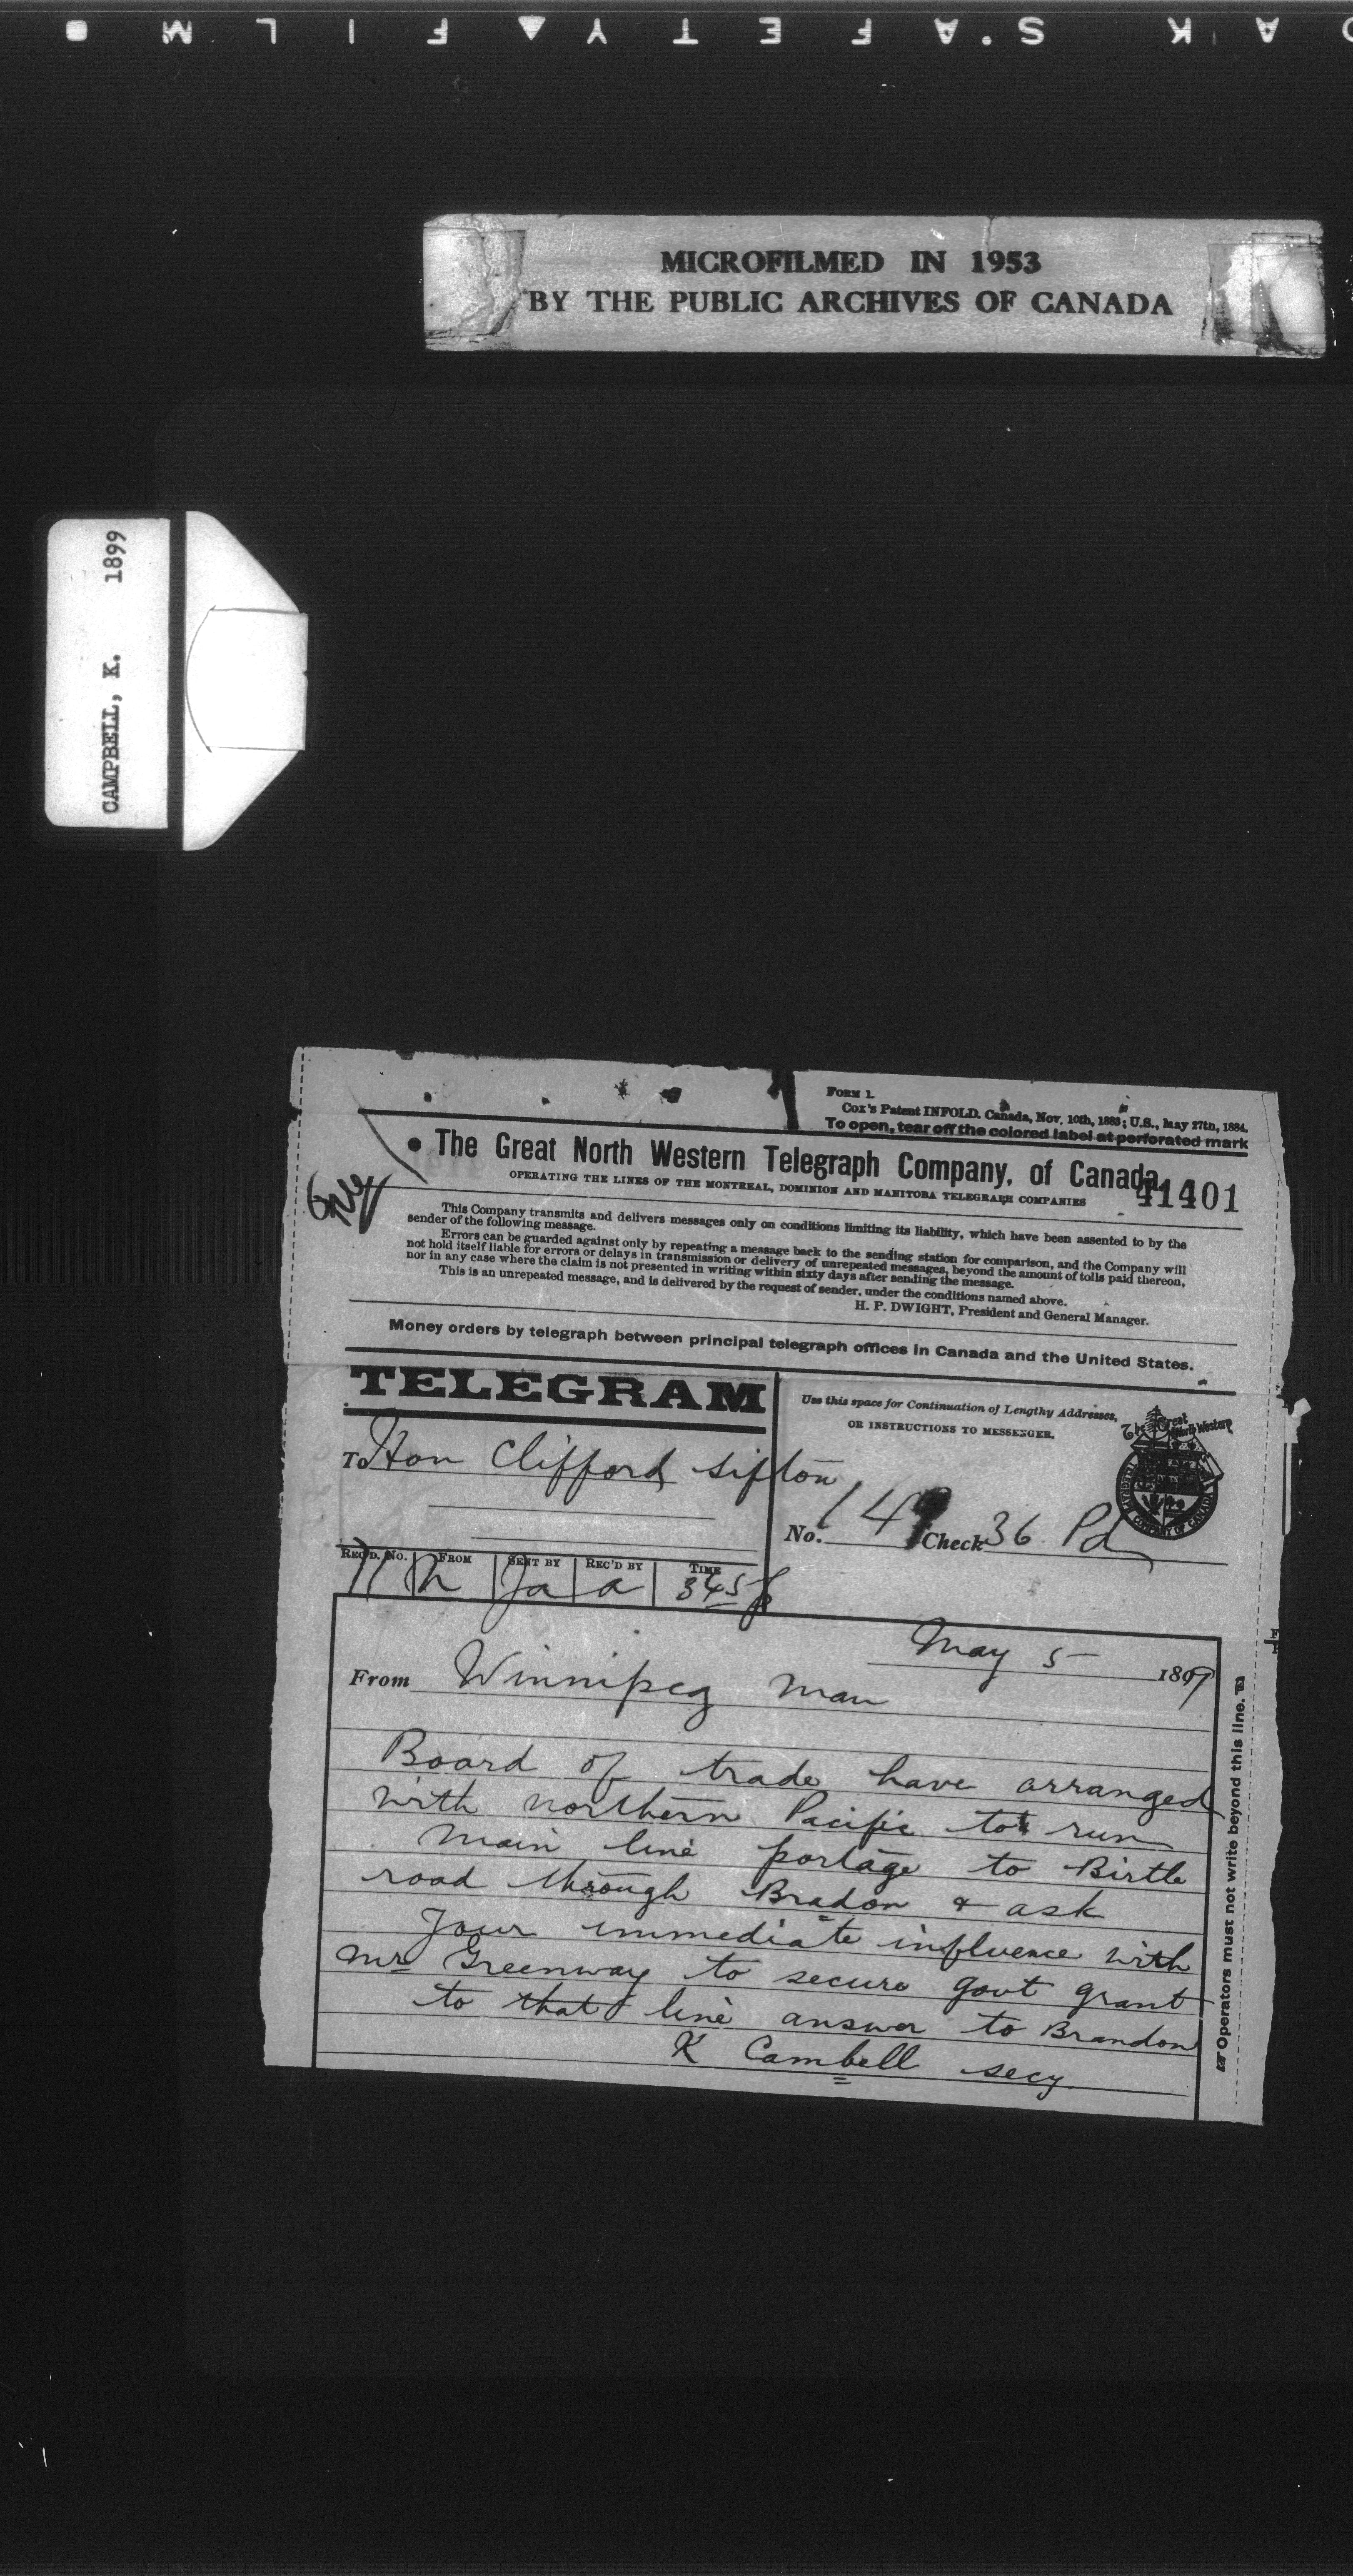 K O D A K S'. A F E T Y ▲ F I L M ■
MICROFILMED IN 1953
BY THE PUBLIC ARCHIVES OF CANADA
CAMPBELL, K. 1899
FORM 1.
Cox's Patent INFOLD. Canada, Nov. 10th, 1883; U.S., May 27th, 1884.
To open, tear off the colored label at perforated mark
The Great North Western Telegraph Company, of Canada.
41401
OPERATING THE LINES OF THE MONTREAL, DOMINION AND MANITOBA TELEGRAPH COMPANIES
This Company transmits and delivers messages only on conditions limiting its liability, which have been assented to by the
sender of the following message.
Errors can be guarded against only by repeating a message back to the sending station for comparison, and the Company will
not hold itself liable for errors or delays in transmission or delivery of unrepeated messages, beyond the amount of tolls paid thereon,
nor in any case where the claim is not presented in writing within sixty days after sending the message.
This is an unrepeated message, and is delivered by the request of sender, under the conditions named above.
H. P. DWIGHT, President and General Manager.
Money orders by telegraph between principal telegraph offices in Canada and the United States.
TELEGRAM
Use this space for Continuation of Lengthy Addresses,
OR INSTRUCTIONS TO MESSENGER.
The Great North Western
TELEGRAPH COMPANY OF CANADA
To Hon Clifford Sifton
No. 149 Check 36 Pd
REC'D. No. FROM SENT BY REC'D BY TIME
71 M Ja a 345 p
May 5 1899
From Winnipeg Man
Board of trade have arranged
with northern Pacific to run
main line portage to Birtle
road through Bradon & ask
Your immediate influence with
Mr Greenway to secure govt grant
to that line answer to Brandon
K Cambell secy
Operators must not write beyond this line.